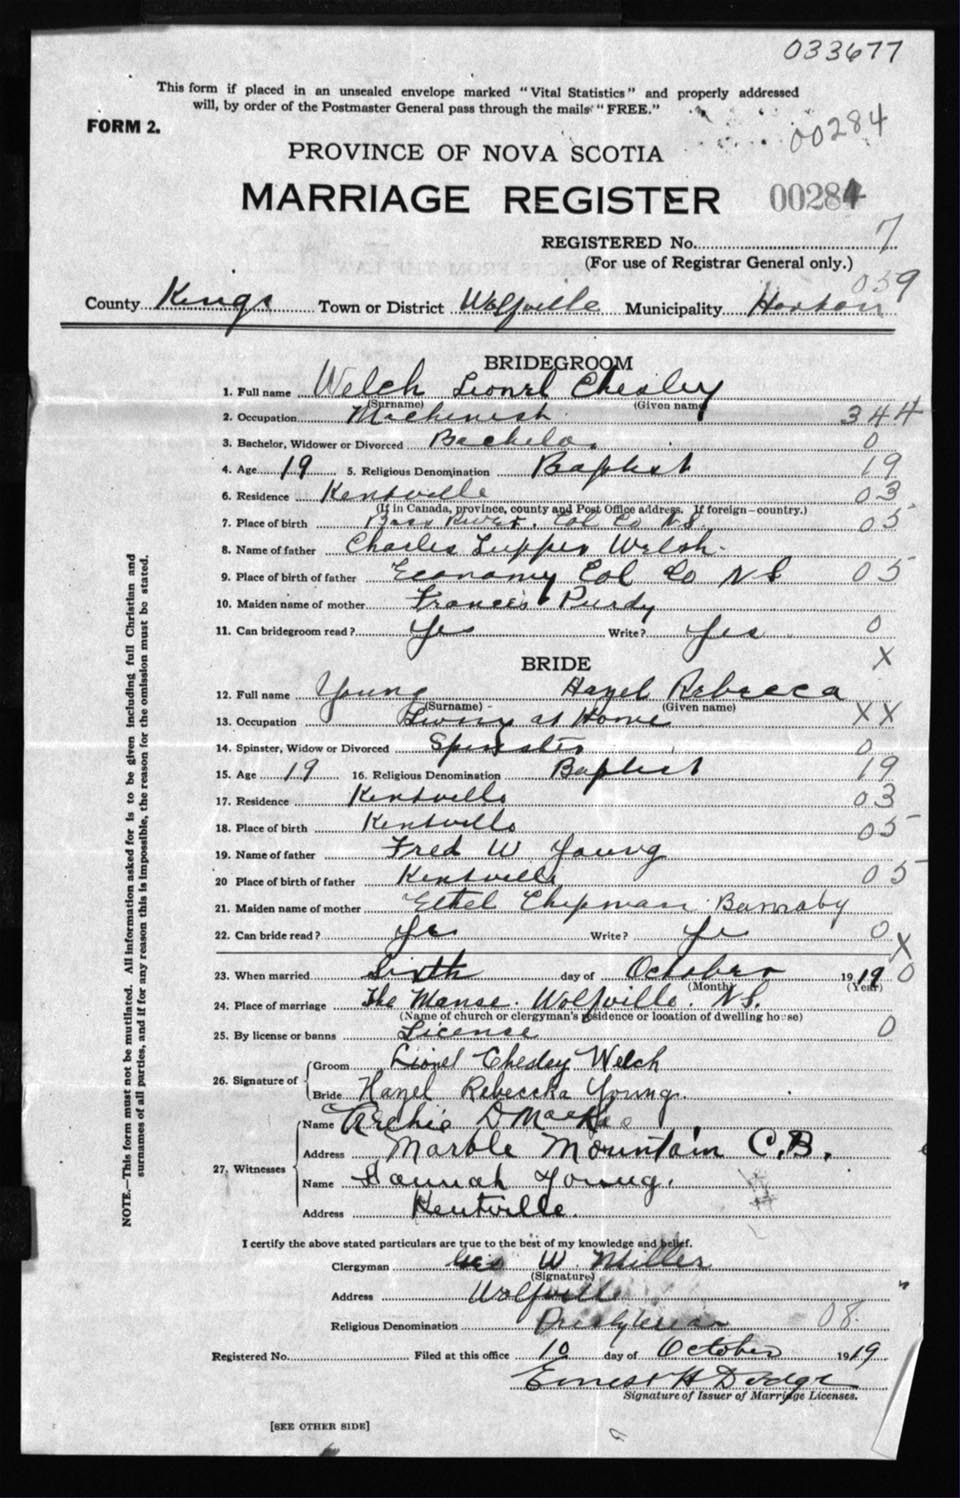 033677
This form if placed in an unsealed envelope marked "Vital Statistics" and properly addressed
will, by order of the Postmaster General pass through the mails "FREE."
FORM 2.
00284
PROVINCE OF NOVA SCOTIA
MARRIAGE REGISTER 00284
REGISTERED No. 7
(For use of Registrar General only.)
059
County Kings Town or District Wolfville Municipality Horton
BRIDEGROOM
1. Full name Welch Lionel Chesley
(Surname) (Given name)
2. Occupation Machinist 344
3. Bachelor, Widower or Divorced Bachelor 0
4. Age 19 5. Religious Denomination Baptist 19
6. Residence Kentville 03
(If in Canada, province, county and Post Office address. If foreign—country.)
7. Place of birth Bass River. Col Co N.S. 05
8. Name of father Charles Tupper Welsh
9. Place of birth of father Economy Col Co N S 05
10. Maiden name of mother Frances Purdy
11. Can bridegroom read? Yes Write? Yes 0
X
BRIDE
12. Full name Young Hazel Rebecca
(Surname) (Given name)
13. Occupation Living at Home XX
14. Spinster, Widow or Divorced Spinster 0
15. Age 19 16. Religious Denomination Baptist 19
17. Residence Kentville 03
18. Place of birth Kentville 05
19. Name of father Fred W Young
20 Place of birth of father Kentville 05
21. Maiden name of mother Ethel Chipman Barnaby
22. Can bride read? Yes Write? Yes 0
X
23. When married Sixth day of October 1919 0
(Month) (Year)
24. Place of marriage The Manse. Wolfville. N.S.
(Name of church or clergyman's residence or location of dwelling house)
25. By license or banns License 0
26. Signature of Groom Lionel Chesley Welch
Bride Hazel Rebeccka Young.
27. Witnesses Name Archie D
Address Marble Mountain C.B.
Name Hannah Young.
Address Kentville.
I certify the above stated particulars are true to the best of my knowledge and belief.
Clergyman Geo W. Miller
(Signature)
Address Wolfville
Religious Denomination Presbyterian 08
Registered No. Filed at this office 10 day of October 1919
Ernest H Dodge
Signature of Issuer of Marriage Licenses.
[SEE OTHER SIDE]
NOTE.—This form must not be mutilated. All information asked for is to be given including full Christian and
surnames of all parties, and if for any reason this is impossible, the reason for the omission must be stated.